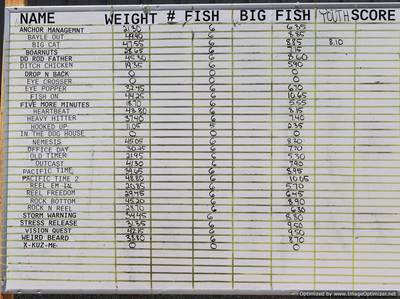 NAME WEIGHT # FISH BIG FISH YOUTH SCORE
ANCHOR MANAGEMNT 21.30 6 6.35
BAYLE OUT 44.90 6 8.85
BIG CAT 47.55 6 8.85 8.10
BOARNUTS 28.65 6 7.15
DD ROD FATHER 45.30 6 8.60
DITCH CHICKEN 19.35 6 5.90
DROP N BACK 0 0 0
EYE CROSSER 0 0 0
EYE POPPER 32.45 6 6.70
FISH ON 44.25 6 10.65
FIVE MORE MINUTES 18.70 6 5.55
HEARTBEAT 43.80 6 8.15
HEAVY HITTER 37.40 6 7.40
HOOKED UP 11.05 5 2.35
IN THE DOG HOUSE 0 0 0
NEMESIS 45.05 6 8.30
OFFICE DAY 30.25 6 7.70
OLD TIMER 21.95 6 5.30
OUTCAST 41.30 6 7.90
PACIFIC TIME 39.65 6 8.95
PACIFIC TIME 2 48.80 6 10.05
REEL EM IN 20.85 6 5.70
REEL FREEDOM 29.45 6 6.45
ROCK BOTTOM 45.20 6 8.90
ROCK N REEL 28.70 6 6.30
STORM WARNING 34.45 6 8.80
STRESS RELEASE 31.35 6 9.50
VISION QUEST 42.15 6 9.50
WEIRD BEARD 33.80 6 8.70
X-KUZ-ME 0 0 0
Optimized by www.ImageOptimizer.net